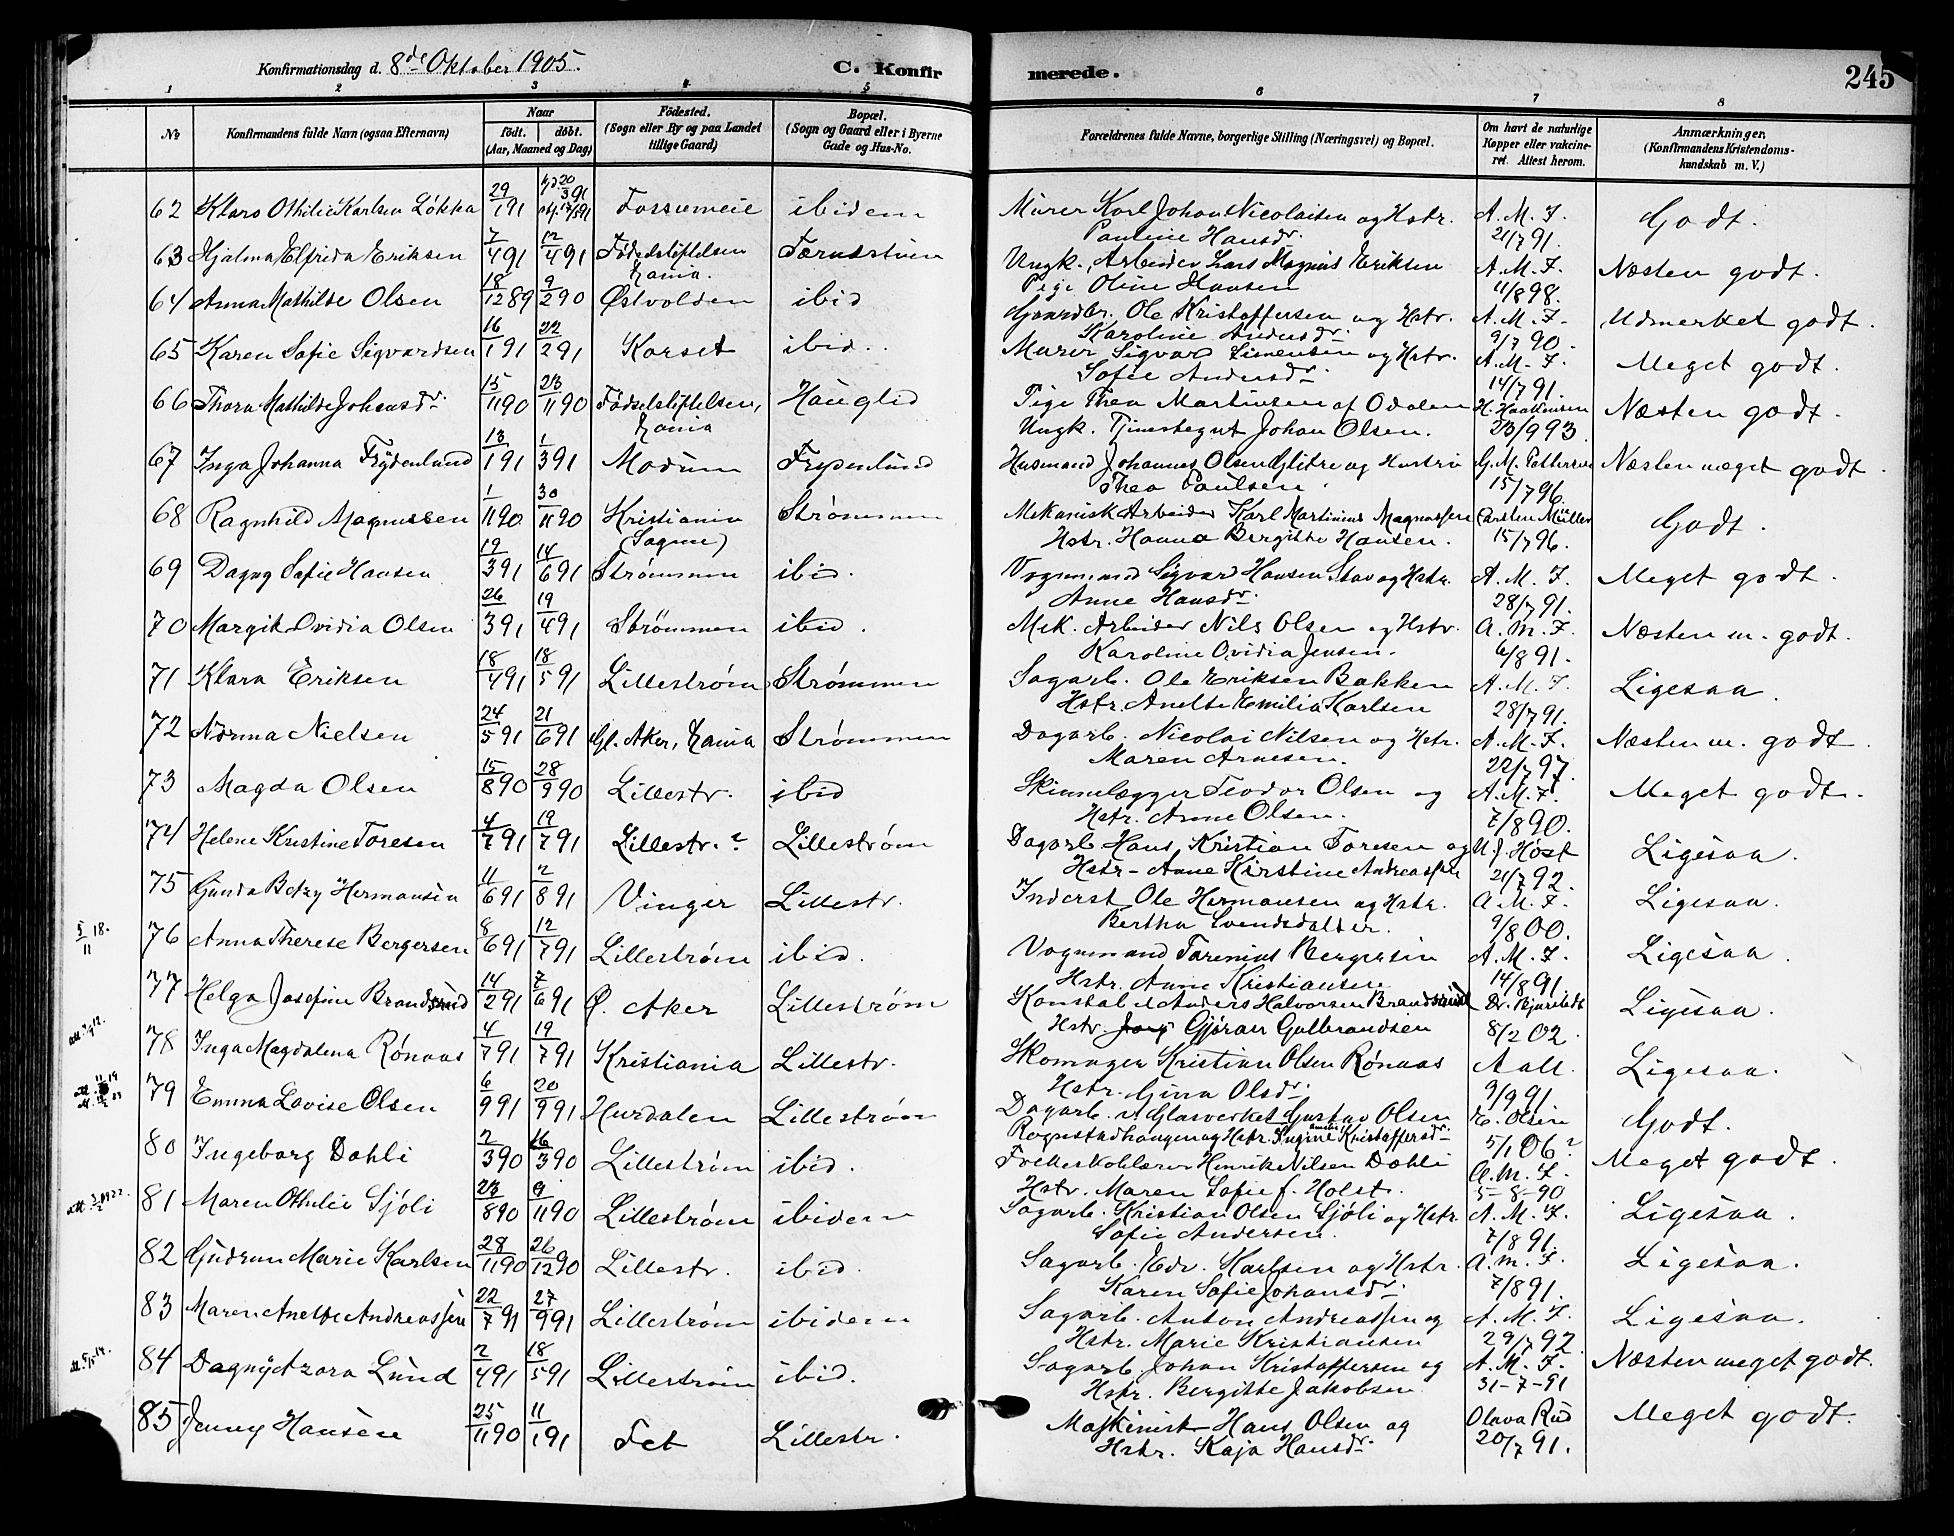 Konfirmationsdag d. 8de Oktober 1905.
C. Konfirmerede.
245
1 2 3 4 5 6 7 8
No
Konfirmandens fulde Navn (ogsaa Efternavn)
Naar
født. døbt.
(Aar, Maaned og Dag)
Fødested.
(Sogn eller By og paa Landet
tillige Gaard)
Bopæl.
(Sogn og Gaard eller i Byerne
Gade og Hus-No.
Forældrenes fulde Navne, borgerlige Stilling (Næringsvei) og Bopæl.
Om havt de naturlige
Kopper eller vakcine-
ret. Attest herom.
Anmærkninger.
(Konfirmandens Kristendoms-
kundskab m. V.)
62 Klara Othilie Karlsen Løkka 29/1 91 Fossumeie ibidem Murer Karl Johan Nicolaisen og Hstr. A. M. F. Godt.
Pauline Hansdr. 21/7 91.
63 Hjalma Elfrida Eriksen 7/4 91 12/4 91 Fødselsstiftelsen Ungk. Arbeider Lars Magnus Eriksen A. M. F. Næsten godt.
Kania. Pige Oline Hansen 11/8 98.
64 Anna Mathilde Olsen 18/12 89 9/2 90 Østvolden ibid Gaardbr. Ole Kristoffersen og Hstr. A. M. F. Udmerket godt.
Karoline Andersdr. 9/7 90.
65 Karen Sofie Sigvardsen 16/1 91 22/2 91 Korset ibid. Murer Sigvard Simensen og Hstr. A. M. F. Meget godt.
Sofie Andersdr. 14/7 91.
66 Thora Mathilde Johansdr. 15/11 90 23/11 90 Fødselsstiftelsen, Hauglid Pige Thea Martinsen af Odalen H. Haakonsen Næsten godt.
Kania Ungk. Tjenestegut Johan Olsen. 23/9 93.
67 Inga Johanna Frydenlund 13/1 91 1/3 91 Modum Frydenlund Husmand Johannes Olsen Glitre og Hustru G. M. Pettersen Næsten meget godt.
Thea Paulsen. 15/7 96.
68 Ragnhild Magnussen 1/11 90 30/11 90 Kristiania Strømmen Mekanisk Arbeider Karl Martinius Magnussen Carsten Müller Godt.
(Sagene) Hstr. Hanna Bergitte Hansen. 15/7 96.
69 Dagny Sofie Hansen 19/3 91 14/6 91 Strømmen ibid. Vognmand Sigvard Hansen Stav og Hstr. A. M. F. Meget godt.
Anne Hansdr. 28/7 91.
70 Margit Ovidia Olsen 26/3 91 19/4 91 Strømmen ibid. Mek. Arbeider Nils Olsen og Hstr. A. M. F. Næsten m. godt.
Karoline Ovidia Jensen. 6/8 91.
71 Klara Eriksen 18/4 91 18/5 91 Lillestrøm Strømmen Sagarb. Ole Eriksen Bakken A. M. F. Ligesaa.
Hstr. Anette Emilia Karlsen 28/7 91.
72 Norma Nielsen 24/5 91 21/6 91 Gl. Aker, Kania Strømmen Dagarb. Nicolai Nilsen og Hstr. A. M. F. Næsten m. godt.
Maren Arnesen. 22/7 97.
73 Magda Olsen 15/8 90 28/9 90 Lillestr. ibid Skinnelægger Teodor Olsen og A. M. F. Meget godt.
Hstr. Anne Olsen. 7/8 90.
74 Helene Kristine Toresen 4/7 91 19/7 91 Lillestr.? Lillestrøm Dagarb Hans Kristian Toresen og Høst Ligesaa.
Hstr. Anne Kirstine Andreassen 21/7 92.
75 Gunda Betzy Hermansen 11/6 91 2/8 91 Vinger Lillestr. Inderst Ole Hermansen og Hstr. A. M. F. Ligesaa.
Bertha Svendsdatter. 9/8 00.
5/11 18. 76 Anna Therese Bergersen 8/6 91 12/7 91 Lillestrøm ibid. Vognmand Torenius Bergersen A. M. F. Ligesaa.
Hstr. Anne Kristiansen 14/8 91.
77 Helga Josefine Brandsrud 14/2 91 7/6 91 Ø. Aker Lillestrøm Konstabel Anders Halvorsen Brandsrud Dr. Bjørnstedt Ligesaa.
Hstr. Gjøran Gulbrandsen 8/2 02.
78 Inga Magdalena Rønaas 4/7 91 19/7 91 Kristiania Lillestr. Skomager Kristian Olsen Rønaas Aall. Ligesaa.
Hstr. Gina Olsdr. 9/9 91
79 Emma Lovise Olsen 6/9 91 20/9 91 Hurdalen Lillestrøm Dagarb. v. Glasverket Gustav Olsen E. Olsen Godt.
Rognstadhaugen og Hstr. Ingine Kristoffersdr. 5/1 06?
80 Ingeborg Dahli 2/3 90 16/3 90 Lillestrøm ibid. Folkeskolelærer Henrik Nilsen Dahli A. M. F. Meget godt.
Hstr. Maren Sofie f. Holst. 5-8-90
81 Maren Othilie Sjøli 23/8 90 9/11 90 Lillestrøm ibidem Sagarb. Kristian Olsen Sjøli og Hstr. A. M. F. Ligesaa.
Sofie Andersen. 7/8 91.
82 Gudrun Marie Karlsen 28/11 90 26/12 90 Lillestr. ibid. Sagarb. Edv. Karlsen og Hstr. A. M. F. Ligesaa.
Karen Sofie Johansdr. 7/8 91.
83 Maren Anette Andreassen 22/7 91 27/9 91 Lillestrøm ibidem Sagarb. Anton Andreassen og A. M. F. Ligesaa.
Hstr. Marie Kristiansen 29/7 92.
84 Dagny Azora Lund 2/4 91 18/5 91 Lillestrøm ibid. Sagarb. Johan Kristoffersen og A. M. F. Næsten meget godt.
Hstr. Bergitte Jakobsen 31-7-91
85 Jenny Hansen 25/11 90 11/1 91 Fet Lillestr. Maskinist Hans Olsen og Olava Rud Meget godt.
Hstr. Kaja Hansdr. 20/7 91.